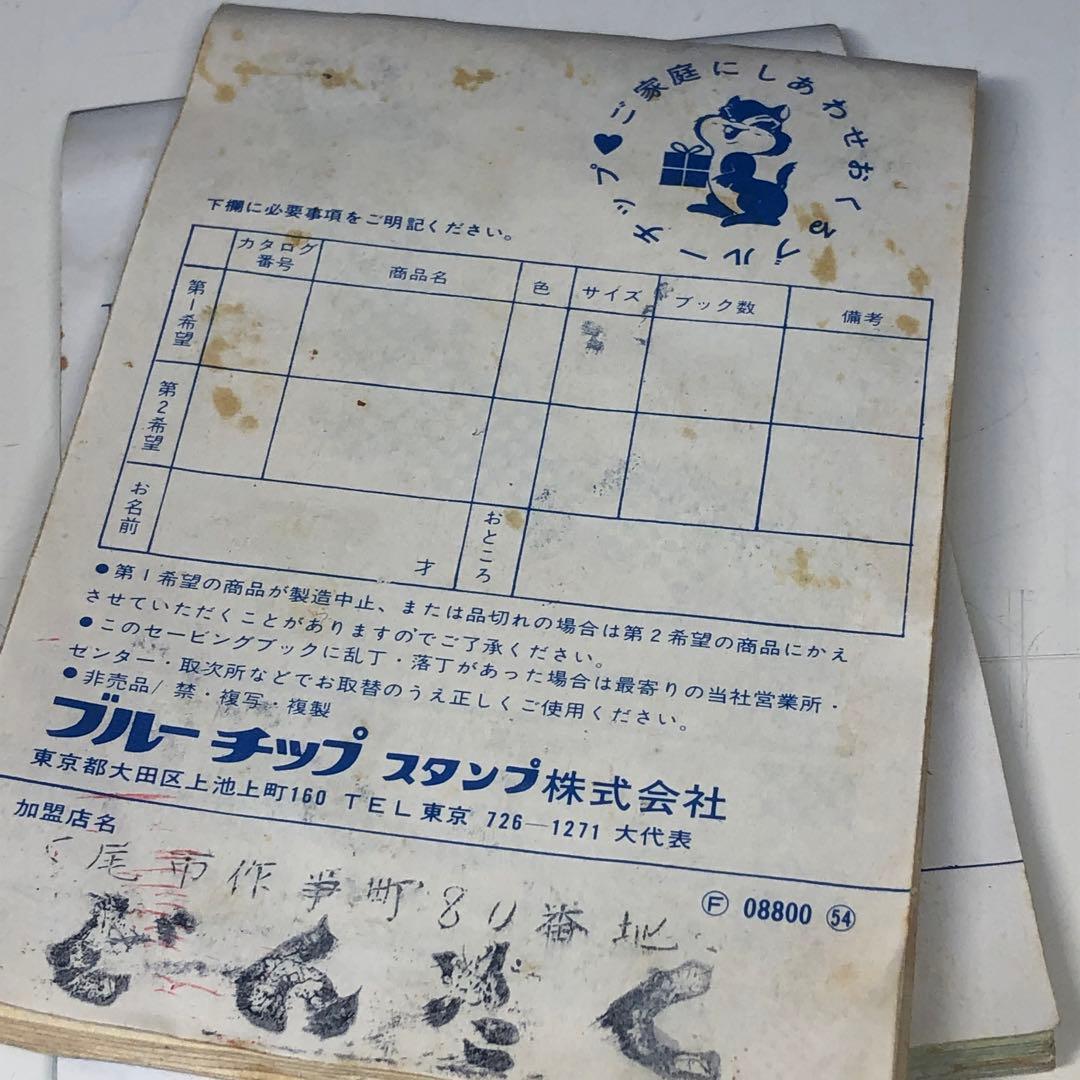 ブルーチップ♥ご家庭にしあわせおくる
下欄に必要事項をご明記ください。
カタログ番号 商品名 色 サイズ ブック数 備考
第1希望
第2希望
お名前 才 おところ
●第1希望の商品が製造中止、または品切れの場合は第2希望の商品にかえ
させていただくことがありますのでご了承ください。
●このセービングブックに乱丁・落丁があった場合は最寄りの当社営業所・
センター・取次所などでお取替のうえ正しくご使用ください。
●非売品/禁・複写・複製
ブルーチップ スタンプ株式会社
東京都大田区上池上町160 TEL東京 726-1271 大代表
加盟店名
Ⓕ 08800 ㊴
尾市作 町80番地